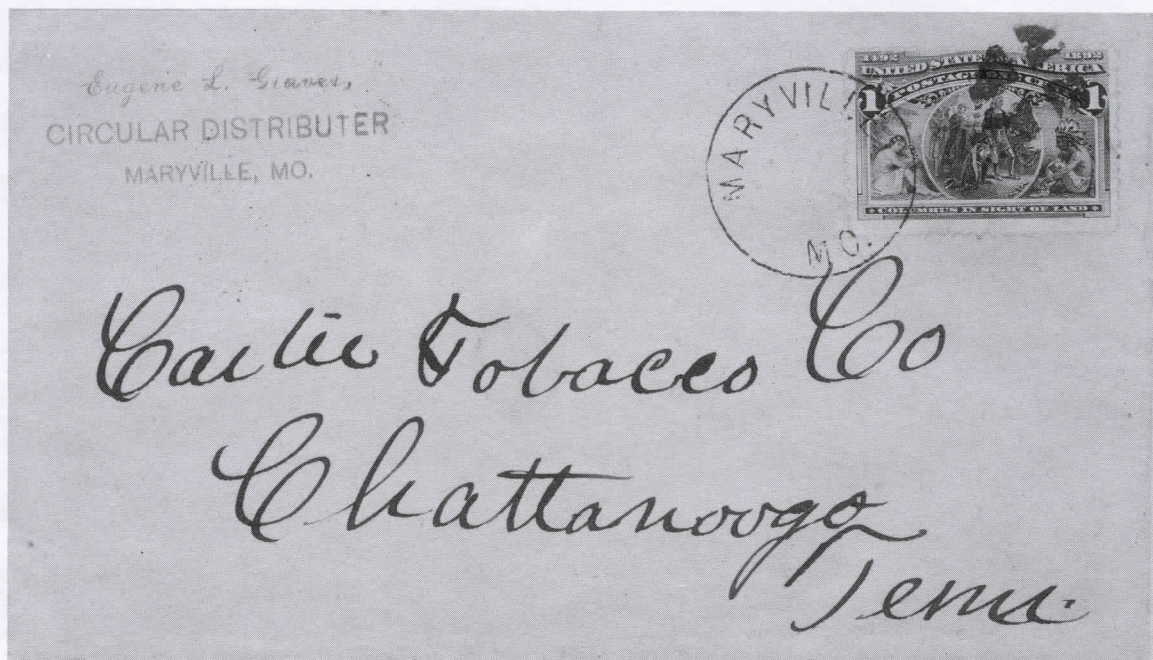 Eugene L. Graves,
CIRCULAR DISTRIBUTER
MARYVILLE, MO.
MARYVILLE
MO.
1492 1892
UNITED STATES OF AMERICA
POSTAGE ONE CENT
1 1
COLUMBUS IN SIGHT OF LAND
Carter Tobacco Co
Chattanooga
Tenn.